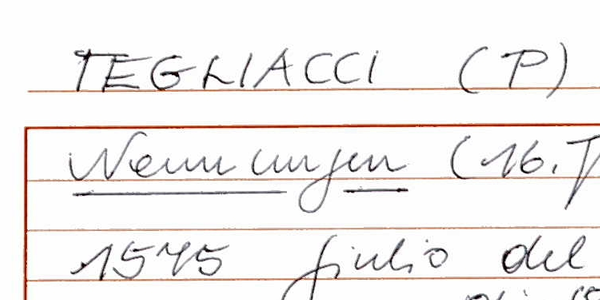 TEGLIACCI (P)
Nennungen (16. J
1575 giulio del